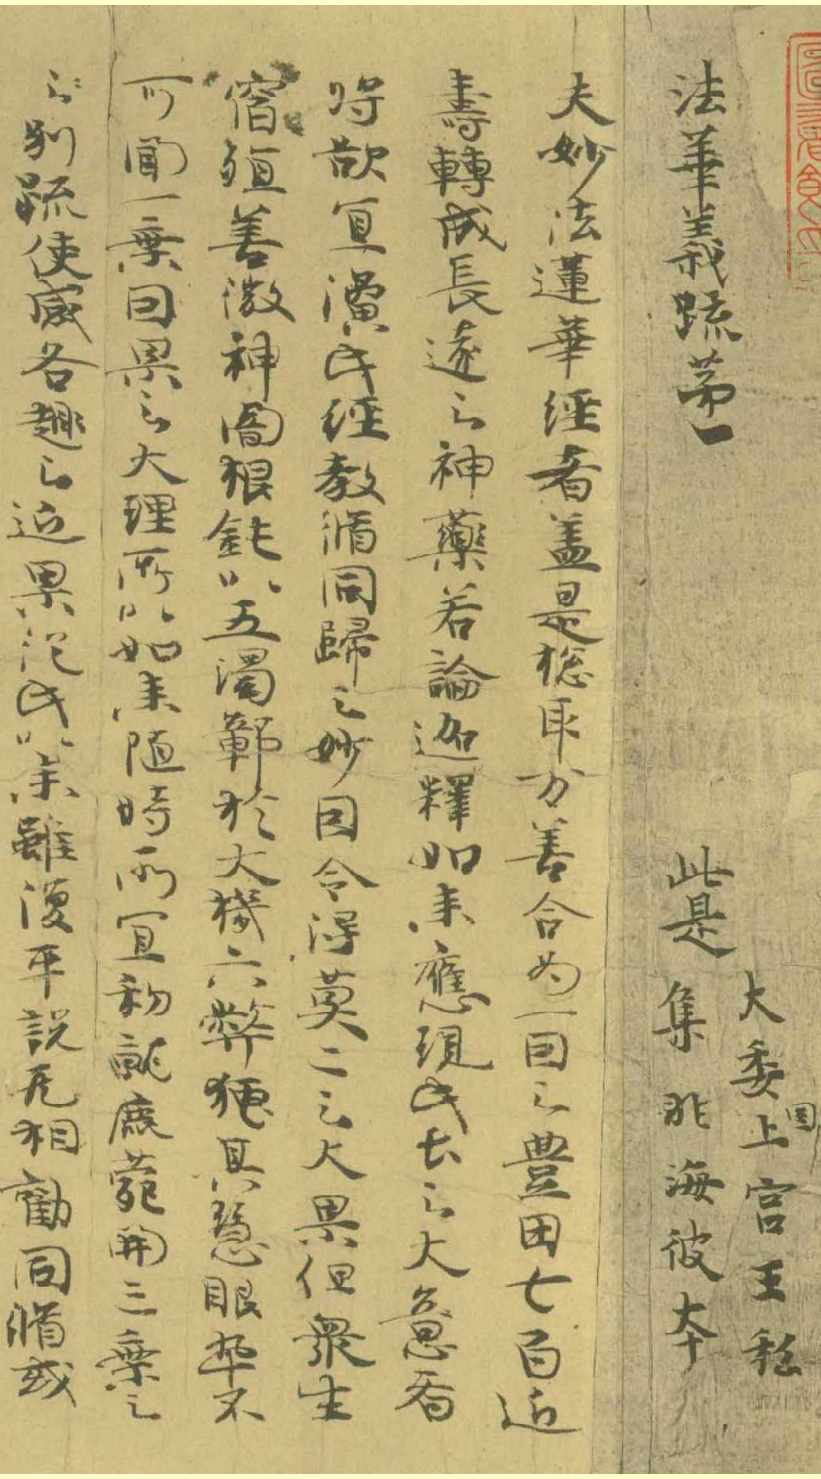 法華義疏第一
此是
大委國上宮王私
集非海彼本
夫妙法蓮華經者盖是惣取万善合為一因之豊田七百近
壽轉成長遠之神藥若論迦釋如来應現此土之大意者
将欲宜演此經教脩同歸之妙因令得莫二之大果但衆生
宿殖善微神闇根鈍以五濁鄣於大機六弊掩其慧眼卒不
可聞一乗因果之大理所以如来随時所宜初就鹿菀開三乗之
之別疏使感各趣之近果従此以来雖復平說无相勸同脩或